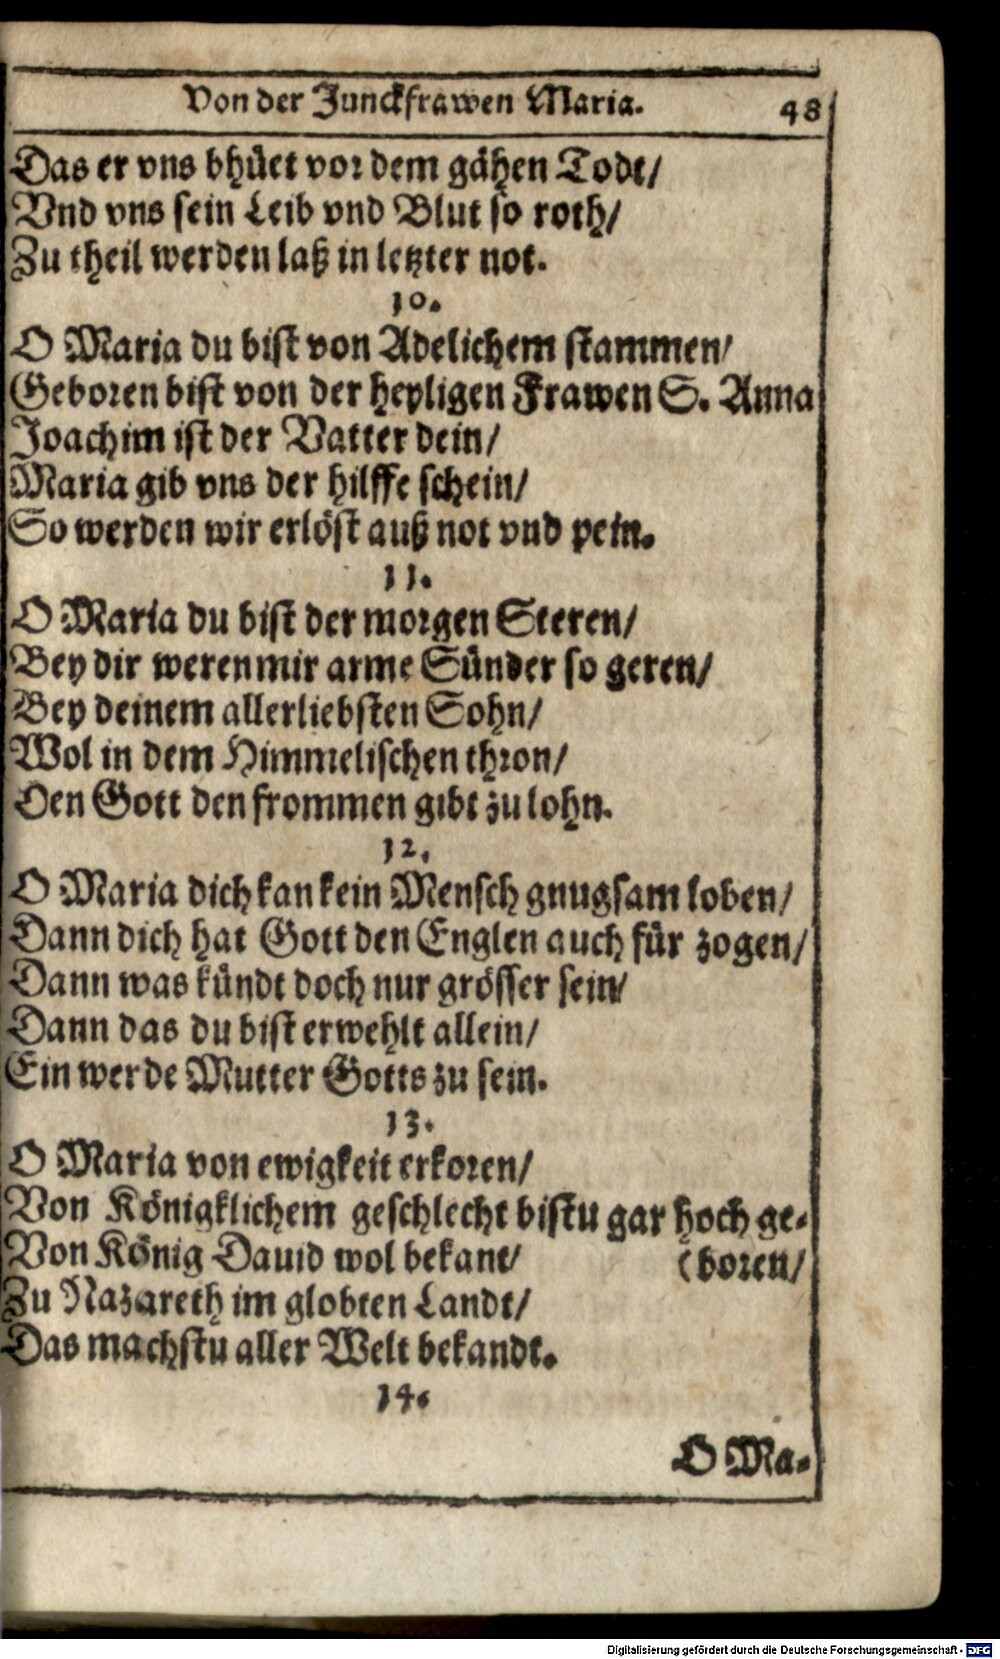 Von der Junckfrawen Maria. 48
Das er vns bhüet vor dem gähen Todt/
Vnd vns sein Leib vnd Blut so roth/
Zu theil werden laß in letzter not.
10.
O Maria du bist von Adelichem stammen/
Geboren bist von der heyligen Frawen S. Anna
Joachim ist der Vatter dein/
Maria gib vns der hilffe schein/
So werden wir erlöst auß not vnd pein.
11.
O Maria du bist der morgen Steren/
Bey dir weren mir arme Sünder so geren/
Bey deinem allerliebsten Sohn/
Wol in dem Himmelischen thron/
Den Gott den frommen gibt zu lohn.
12.
O Maria dich kan kein Mensch gnugsam loben/
Dann dich hat Gott den Englen auch für zogen/
Dann was kündt doch nur grösser sein/
Dann das du bist erwehlt allein/
Ein werde Mutter Gotts zu sein.
13.
O Maria von ewigkeit erkoren/
Von Königklichem geschlecht bistu gar hoch ge-
Von König Dauid wol bekant/ (boren/
Zu Nazareth im globten Landt/
Das machstu aller Welt bekandt.
14.
O Ma-
Digitalisierung gefördert durch die Deutsche Forschungsgemeinschaft - DFG